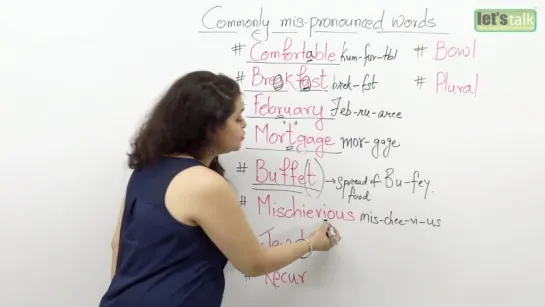 let's talk
Commonly mis-pronounced words
# Comfortable kum-fur-tbl
# Breakfast brek-fst
February Feb-ru-aree
Mortgage mor-gage
# Buffet() → spread of food Bu-fey
# Mischievious mis-chee-vi-us
# Recur
# Bowl
# Plural